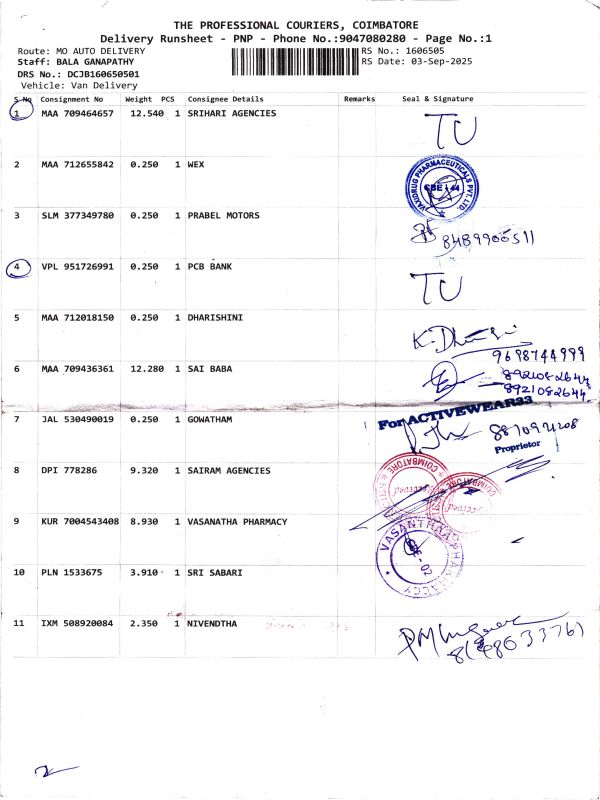 THE PROFESSIONAL COURIERS, COIMBATORE
Delivery Runsheet - PNP - Phone No.:9047080280 - Page No.:1
Route: MO AUTO DELIVERY RS No.: 1606505
Staff: BALA GANAPATHY RS Date: 03-Sep-2025
DRS No.: DCJB160650501
Vehicle: Van Delivery
S No Consignment No Weight PCS Consignee Details Remarks Seal & Signature
1 MAA 709464657 12.540 1 SRIHARI AGENCIES TU
2 MAA 712655842 0.250 1 WEX
VAXIDRUG PHARMACEUTICALS PVT. LTD.
CBE - 44
3 SLM 377349780 0.250 1 PRABEL MOTORS
8489900511
4 VPL 951726991 0.250 1 PCB BANK TU
5 MAA 712018150 0.250 1 DHARISHINI
9698744999
6 MAA 709436361 12.280 1 SAI BABA
8921082644
8921082644
For ACTIVEWEAR33
7 JAL 530490019 0.250 1 GOWATHAM
Proprietor
8 DPI 778286 9.320 1 SAIRAM AGENCIES
COIMBATORE
COIMBATORE
9 KUR 7004543408 8.930 1 VASANATHA PHARMACY
VASANTHAA PHARMACY
10 PLN 1533675 3.910 1 SRI SABARI
11 IXM 508920084 2.350 1 NIVENDTHA
8148033761